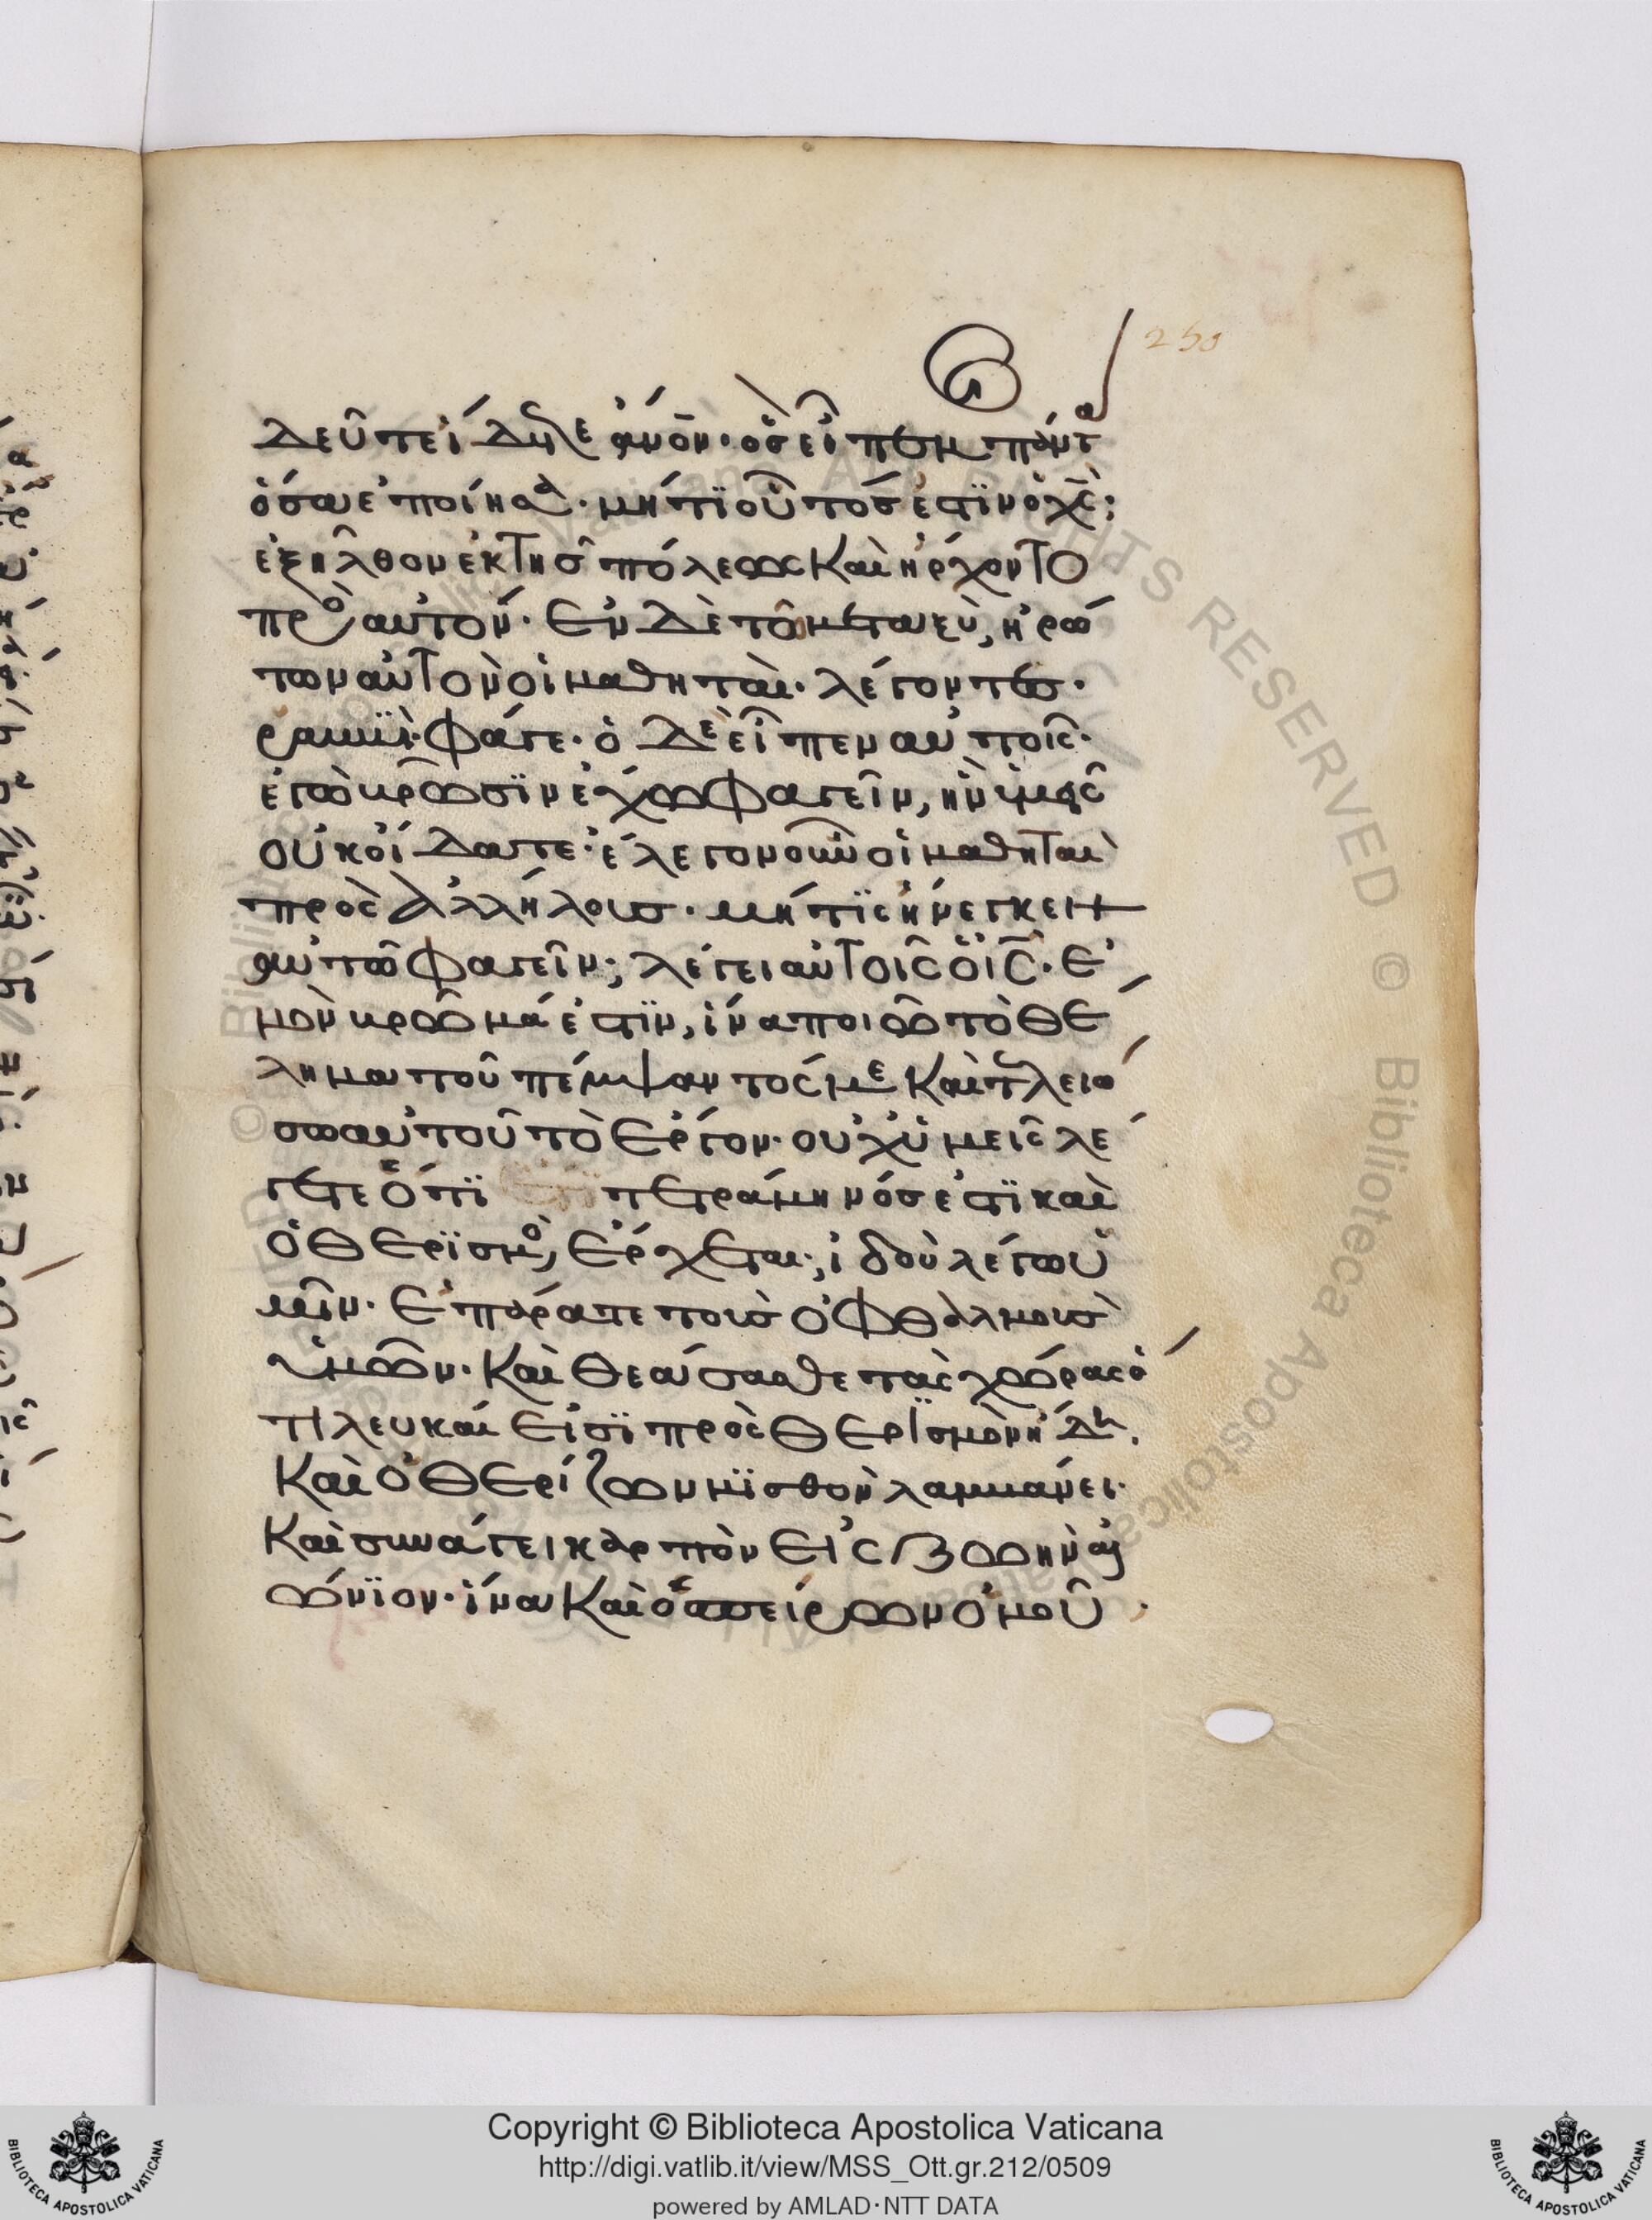 250
δεῦτε ἴδετε ἄνον· ὃς εἶπέν μοι πάντα
ὅσα ἐποίησα· μήτϊ οὗτός ἐστϊν ὁ χς;
ἐξῆλθον ἐκ τῆς πόλεως καὶ ἤρχοντο
πρὸς αὐτόν· Ἐν δὲ τῶ μεταξὺ, ἠρώ
των αὐτὸν οἱ μαθηταὶ· λέγοντες·
ραββΐ· φάγε· ὁ δὲ εἶπεν αὐτοῖς·
ἐγὼ βρῶσϊν ἔχω φαγεῖν, ἣν ὑμεῖς
οὐκ οἴδατε· ἔλεγον οὖν οἱ μαθηταὶ
πρὸς ἀλλήλους· μήτϊς ἤνεγκεν
αὐτῶ φαγεῖν; λέγει αὐτοῖς ὁ ις· ἐ
μὸν βρῶμά ἐστϊν, ἵνα ποιῶ τὸ θέ
λημα τοῦ πέμψαντός με καὶ τελειώ
σω αὐτοῦ τὸ ἔργον· οὐχ ὑμεῖς λέ
γετε ὅτϊ τετράμηνός ἐστϊ καὶ
ὁ θερϊσμὸς ἔρχεται; ἰδοὺ λέγω ὑ
μῖν· ἐπάρατε τοὺς ὀφθαλμοὺς
ὑμῶν· καὶ θεάσασθε τὰς χώρας ὅ
τι λευκαί εἰσϊ πρὸς θερϊσμὸν ἤδη.
καὶ ὁ θερίζων μϊσθὸν λαμβάνει·
καὶ συνάγει καρπὸν εἰς ζωὴν αἰ
ώνϊον· ἵνα καὶ ὁ σπείρων ὁμοῦ
Copyright © Biblioteca Apostolica Vaticana
http://digi.vatlib.it/view/MSS_Ott.gr.212/0509
powered by AMLAD·NTT DATA